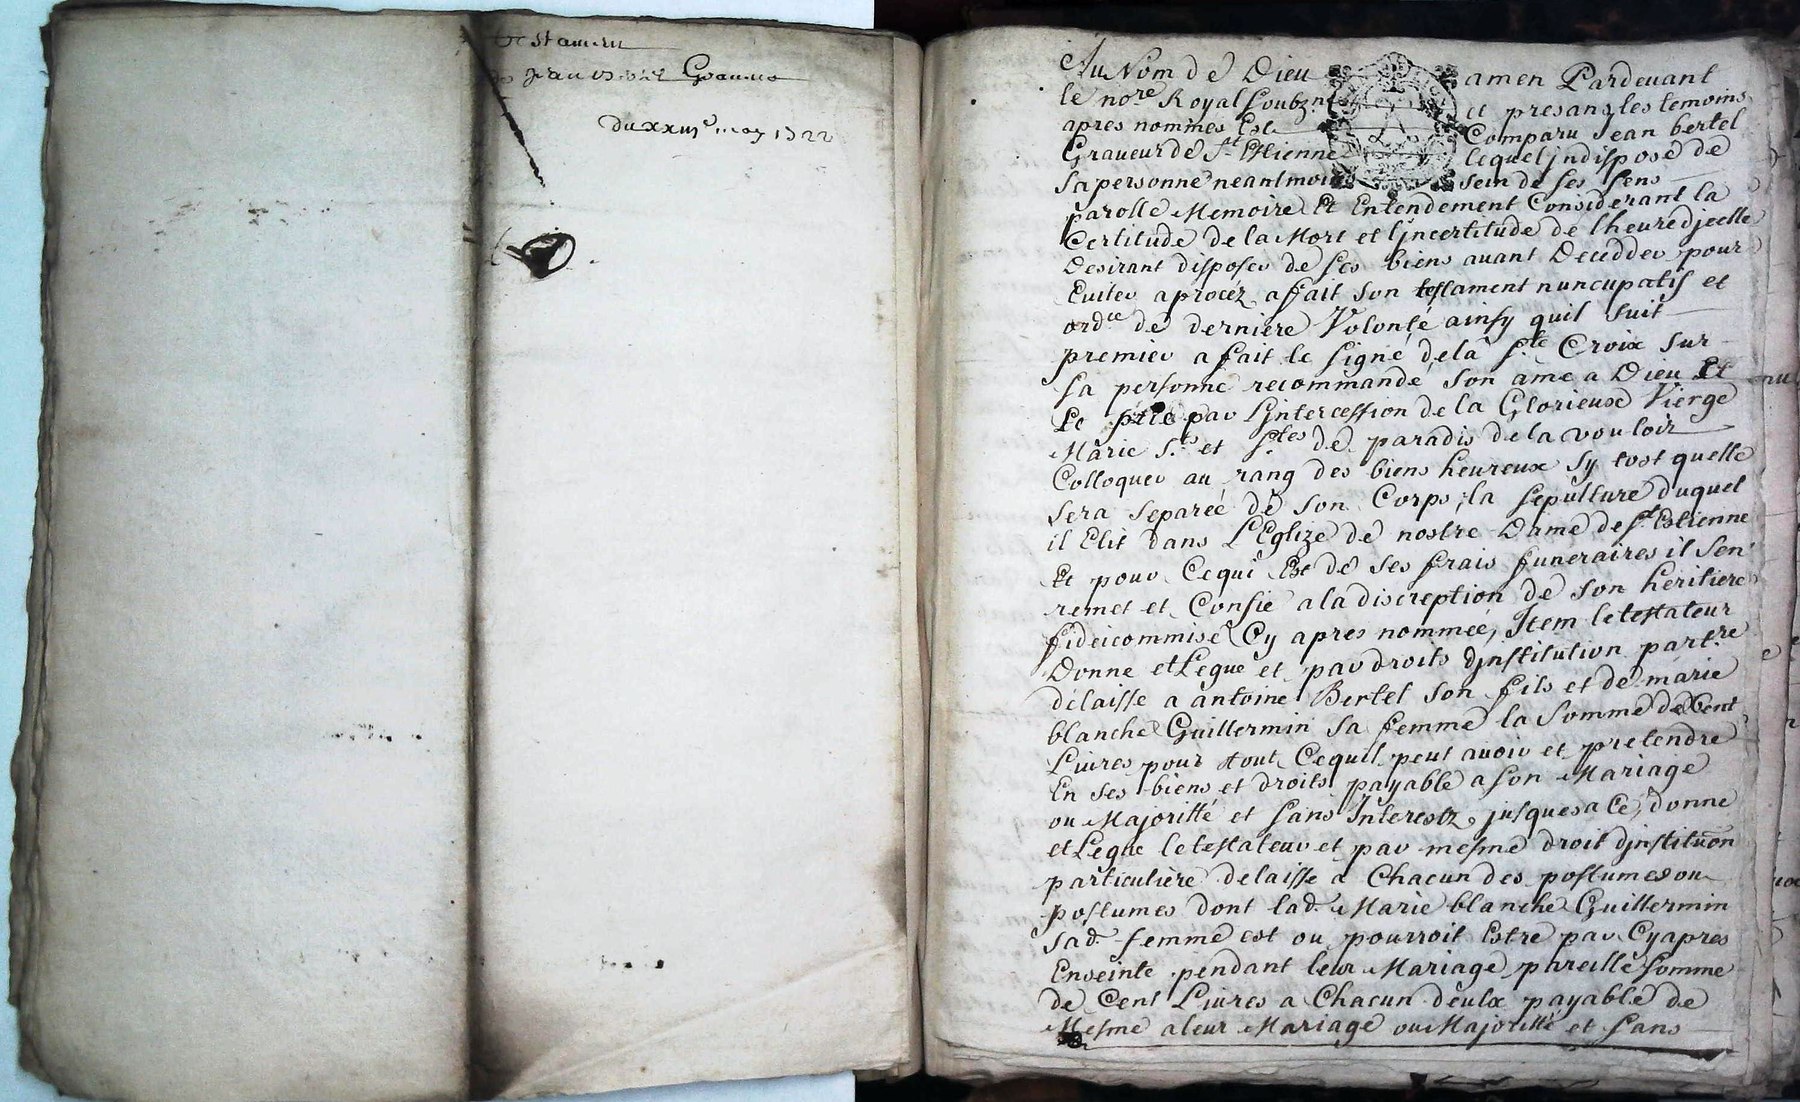 Testament
Jean Bertel Graueur
du xxiij^e may 1722
Au Nom de Dieu amen Pardeuant
le no^re Royal soubz^né et presans les temoins
apres nommés Est Comparu Jean bertel
Graueur de S^t Estienne lequel jndisposé de
sa personne neantmoins sein de ses sens
parolle Memoire Et Entendement Considerant la
Certitude de la Mort et l'jncertitude de l'heure djcelle
Desirant disposer de ses biens auant Decedder pour
Euiter a procéz a fait son testament nuncupatif et
ord^ce de derniere Volonté ainsy quil suit
premier a fait le signe de la s^te Croix sur
sa personne recommandé son ame a Dieu Et
Le prie par l'jntercession de la Glorieuse Vierge
Marie S^ts et S^tes de paradis de la vouloir
Colloquer au rang des biens heureux sy tost quelle
sera separée de son Corps, la sepulture duquel
il Elit dans L'Eglize de nostre Dame de S^t Estienne
Et pour Cequi Est de ses frais funeraires il sen
remet et Confie a la discreption de son heritiere
fideicommise Cy apres nommée, Item le testateur
Donne et Legue et par droits djnstitution part^re
delaisse a antoine Bertel son fils et de marie
blanche Guillermin sa femme la somme de Cent
Liures pour tout Cequil peut auoir et pretendre
En ses biens et droits payable a son Mariage
ou Majoritté et sans Interestz jusques a Ce, donne
et Legue le testateur et par mesme droit djnstituon
particuliere delaisse a Chacun des postumes ou
postumes dont lad. Marie blanche Guillermin
sad. femme est ou pourroit Estre par Cyapres
Enseinte pendant leur Mariage pareille somme
de Cent Liures a Chacun d'eulx payable de
Mesme a leur Mariage ou Majoritté et sans